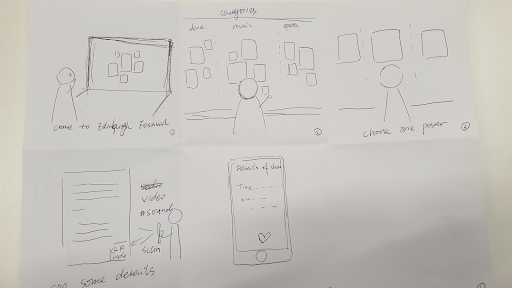 come to Edinburgh Festival
①
categories
dance
music
sports
②
choose one poster
③
video
sound
scan
QR
code
some details
Details of show
Time